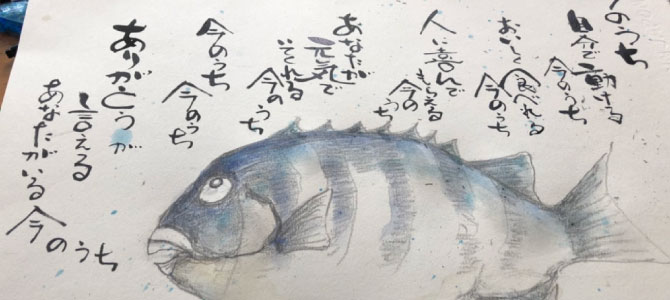 のうち
自分で動ける
今のうち
おいしく食べれる
今のうち
人に喜んで
もらえる
今のうち
あなたが
元気で
いてくれる
今のうち
今のうち
今のうち
ありがとうが
言える
あなたがいる
今のうち